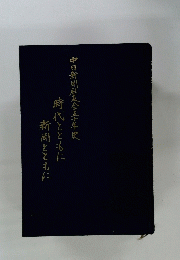 中日新聞社友会三十年史
時代とともに
新聞とともに